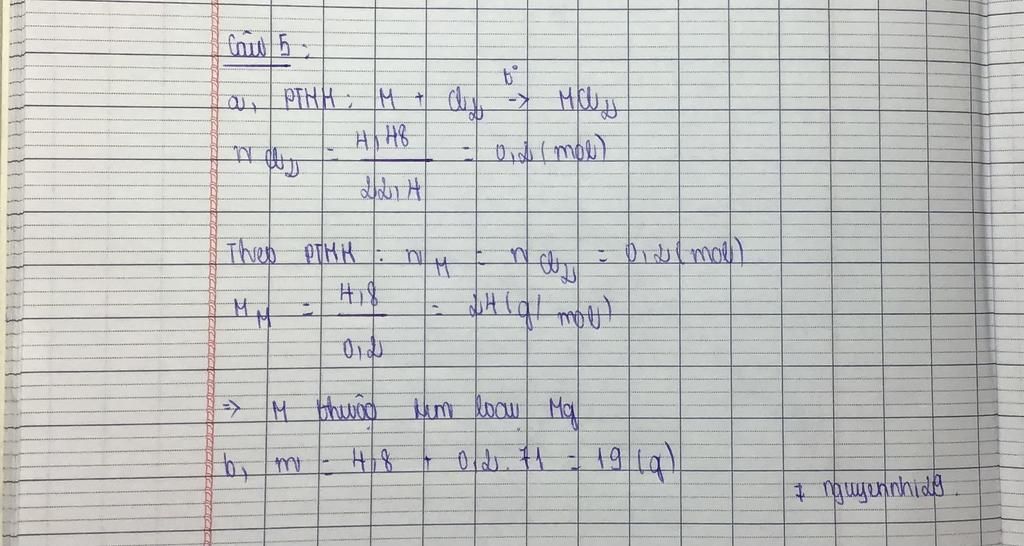 Câu 5:
a, PTHH: M + Cl₂ t°→ MCl₂
n Cl₂ = 4,48 / 22,4 = 0,2 (mol)
Theo PTHH: n M = n Cl₂ = 0,2 (mol)
M M = 4,8 / 0,2 = 24 (g/mol)
=> M thuộc kim loại Mg
b, m = 4,8 + 0,2.71 = 19 (g)
# nguyennhi29.